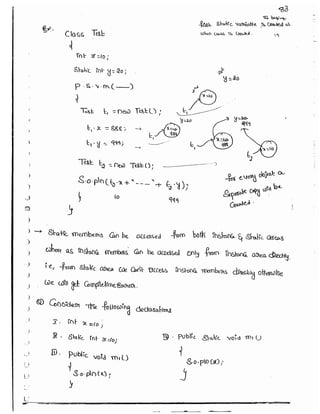 83
Ex:- Class Test
{
int x=10;
Static int y=20;
P.s.v.m(—)
{
Test t1 = new Test();
t1.x = 888; →
t1.y = 999; →
Test t2 = new Test();
S.o.pln(t2.x + "---" + t2.y);
10 999
}
}
Static variable is created at
class is loaded.
y=20
x=10
t1
y=20
999
x=10
888
t1
t1
x=10
888
t2
x=10
for every object a
Separate copy will be
Created.
→ Static members Can be accessed from both instance & Static areas
where as instance members Can be accessed only from instance area directly
i.e, from static area we Can't access instance members directly otherwise
we will get CompiletimeError.
Consider the following declarations
I. int x=10;
II. Static int x=10;
III. public void m1()
{
S.o.pln(x);
}
IV. public Static void m1()
{
S.o.pln(x);
}